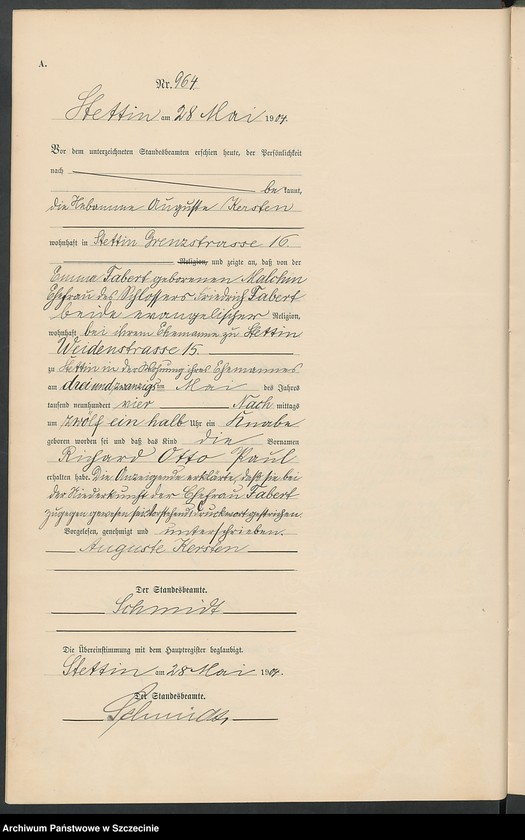 A.
Nr. 964
Stettin am 28 Mai 1904.
Vor dem unterzeichneten Standesbeamten erschien heute, der Persönlichkeit
nach
be kannt,
die Hebamme Auguste Kersten
wohnhaft in Stettin Grenzstrasse 16
Religion, und zeigte an, daß von der
Emma Tabert geborenen Malchin
Ehefrau des Schlossers Friedrich Tabert
beide evangelischer Religion,
wohnhaft bei ihrem Ehemanne zu Stettin
Weidenstrasse 15.
zu Stettin in der Wohnung ihres Ehemannes
am dreiundzwanzigsten Mai des Jahres
tausend neunhundert vier Nach mittags
um zwölf ein halb Uhr ein Knabe
geboren worden sei und daß das Kind die Vornamen
Richard Otto Paul
erhalten habe. Die Anzeigende erklärte, daß sie bei
der Niederkunft der Ehefrau Tabert
zugegen gewesen sei. Vorstehend 1 Druckwort gestrichen.
Vorgelesen, genehmigt und unterschrieben.
Auguste Kersten
Der Standesbeamte.
Schmidt
Die Übereinstimmung mit dem Hauptregister beglaubigt.
Stettin am 28 Mai 1904.
Der Standesbeamte.
Schmidt
Archiwum Państwowe w Szczecinie